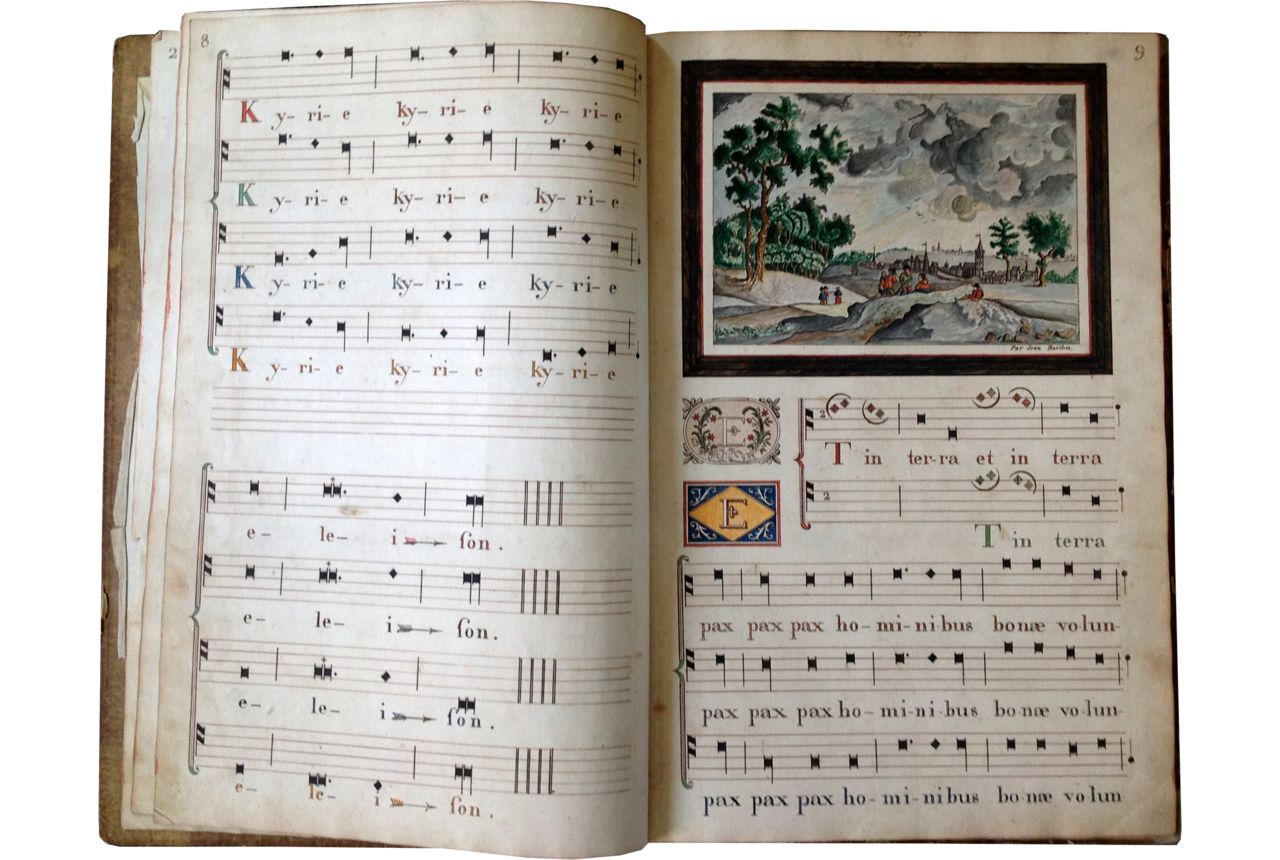 2
8
K y- ri- e ky- ri- e ky- ri- e
K y- ri- e ky- ri- e ky- ri- e
K y- ri- e ky- ri- e ky- ri- e
K y- ri- e ky- ri- e ky- ri- e
e- le- i ſon.
e- le- i ſon.
e- le- i ſon.
e- le- i ſon.
9
Par Jean
E
T in ter-ra et in terra
E
T in terra
pax pax pax ho- mi- ni bus bonæ volun-
pax pax pax ho- mi- ni- bus bo-næ vo-lun-
pax pax pax ho- mi- ni bus bo-næ vo lun